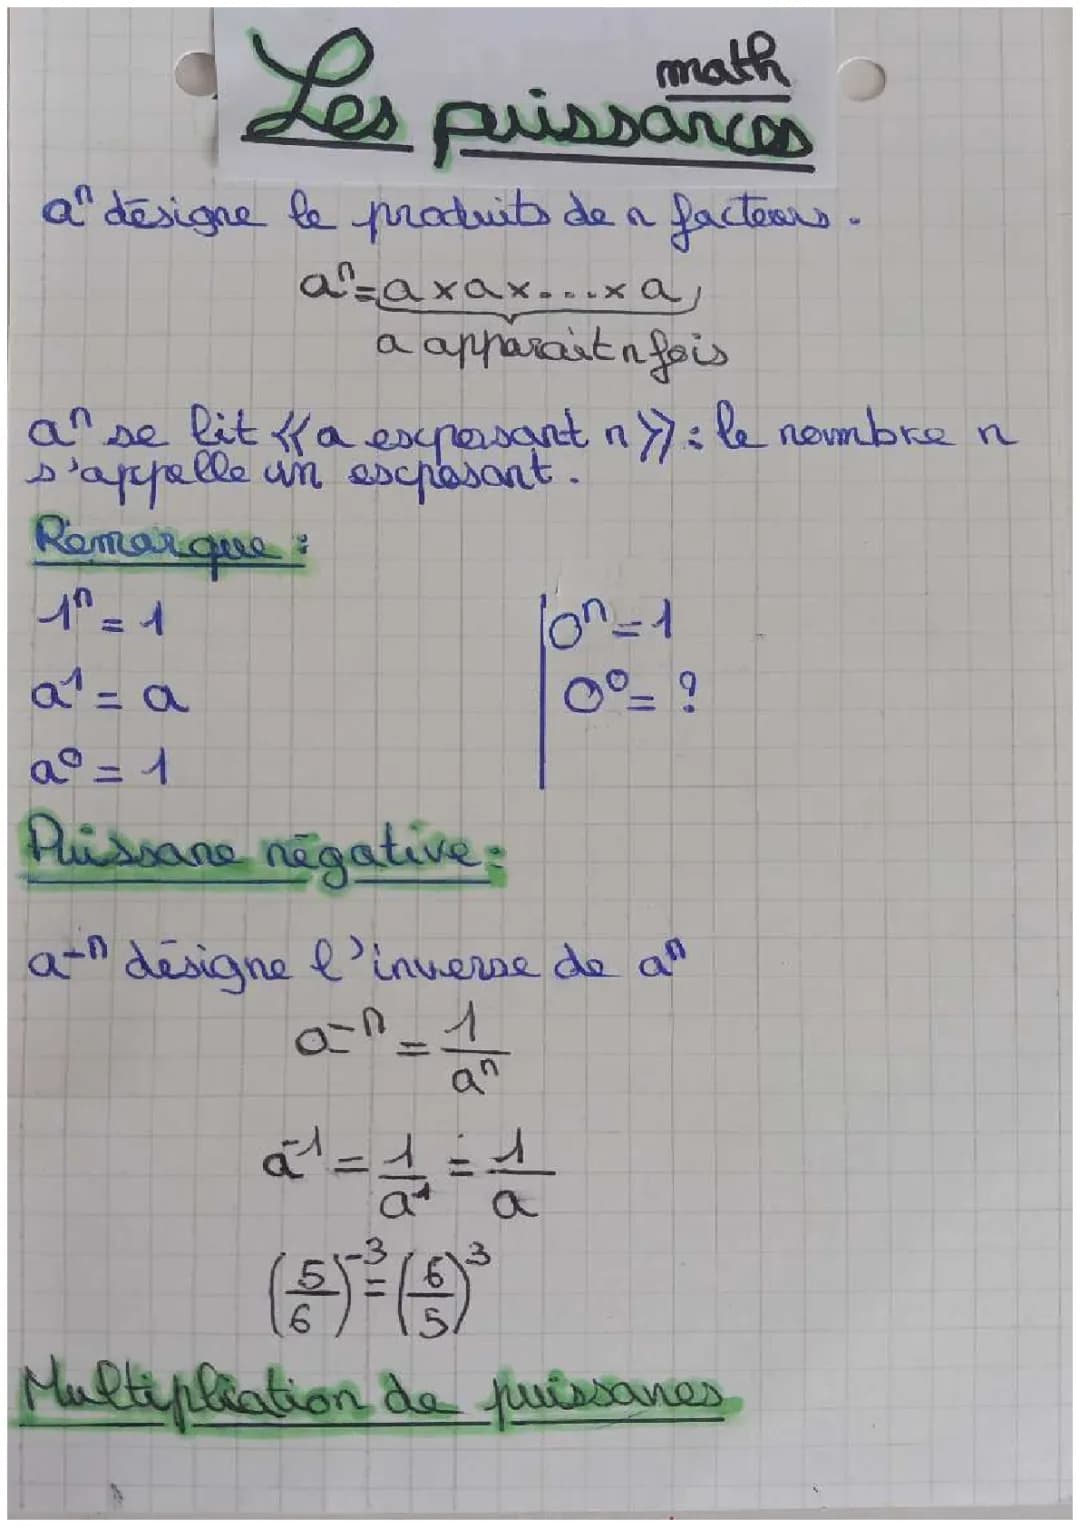 math
Les puissances
aⁿ désigne le produits de n facteurs.
aⁿ = a × a × ... × a,
a apparait n fois
aⁿ se lit « a exposant n » : le nombre n
s'appelle un exposant.
Remarque :
1ⁿ = 1
0ⁿ = 1
a¹ = a
0⁰ = ?
a⁰ = 1
Puissane négative :
a⁻ⁿ désigne l'inverse de aⁿ
a⁻ⁿ = 1/aⁿ
a⁻¹ = 1/a¹ = 1/a
(5/6)⁻³ = (6/5)³
Multipliation de puissanes